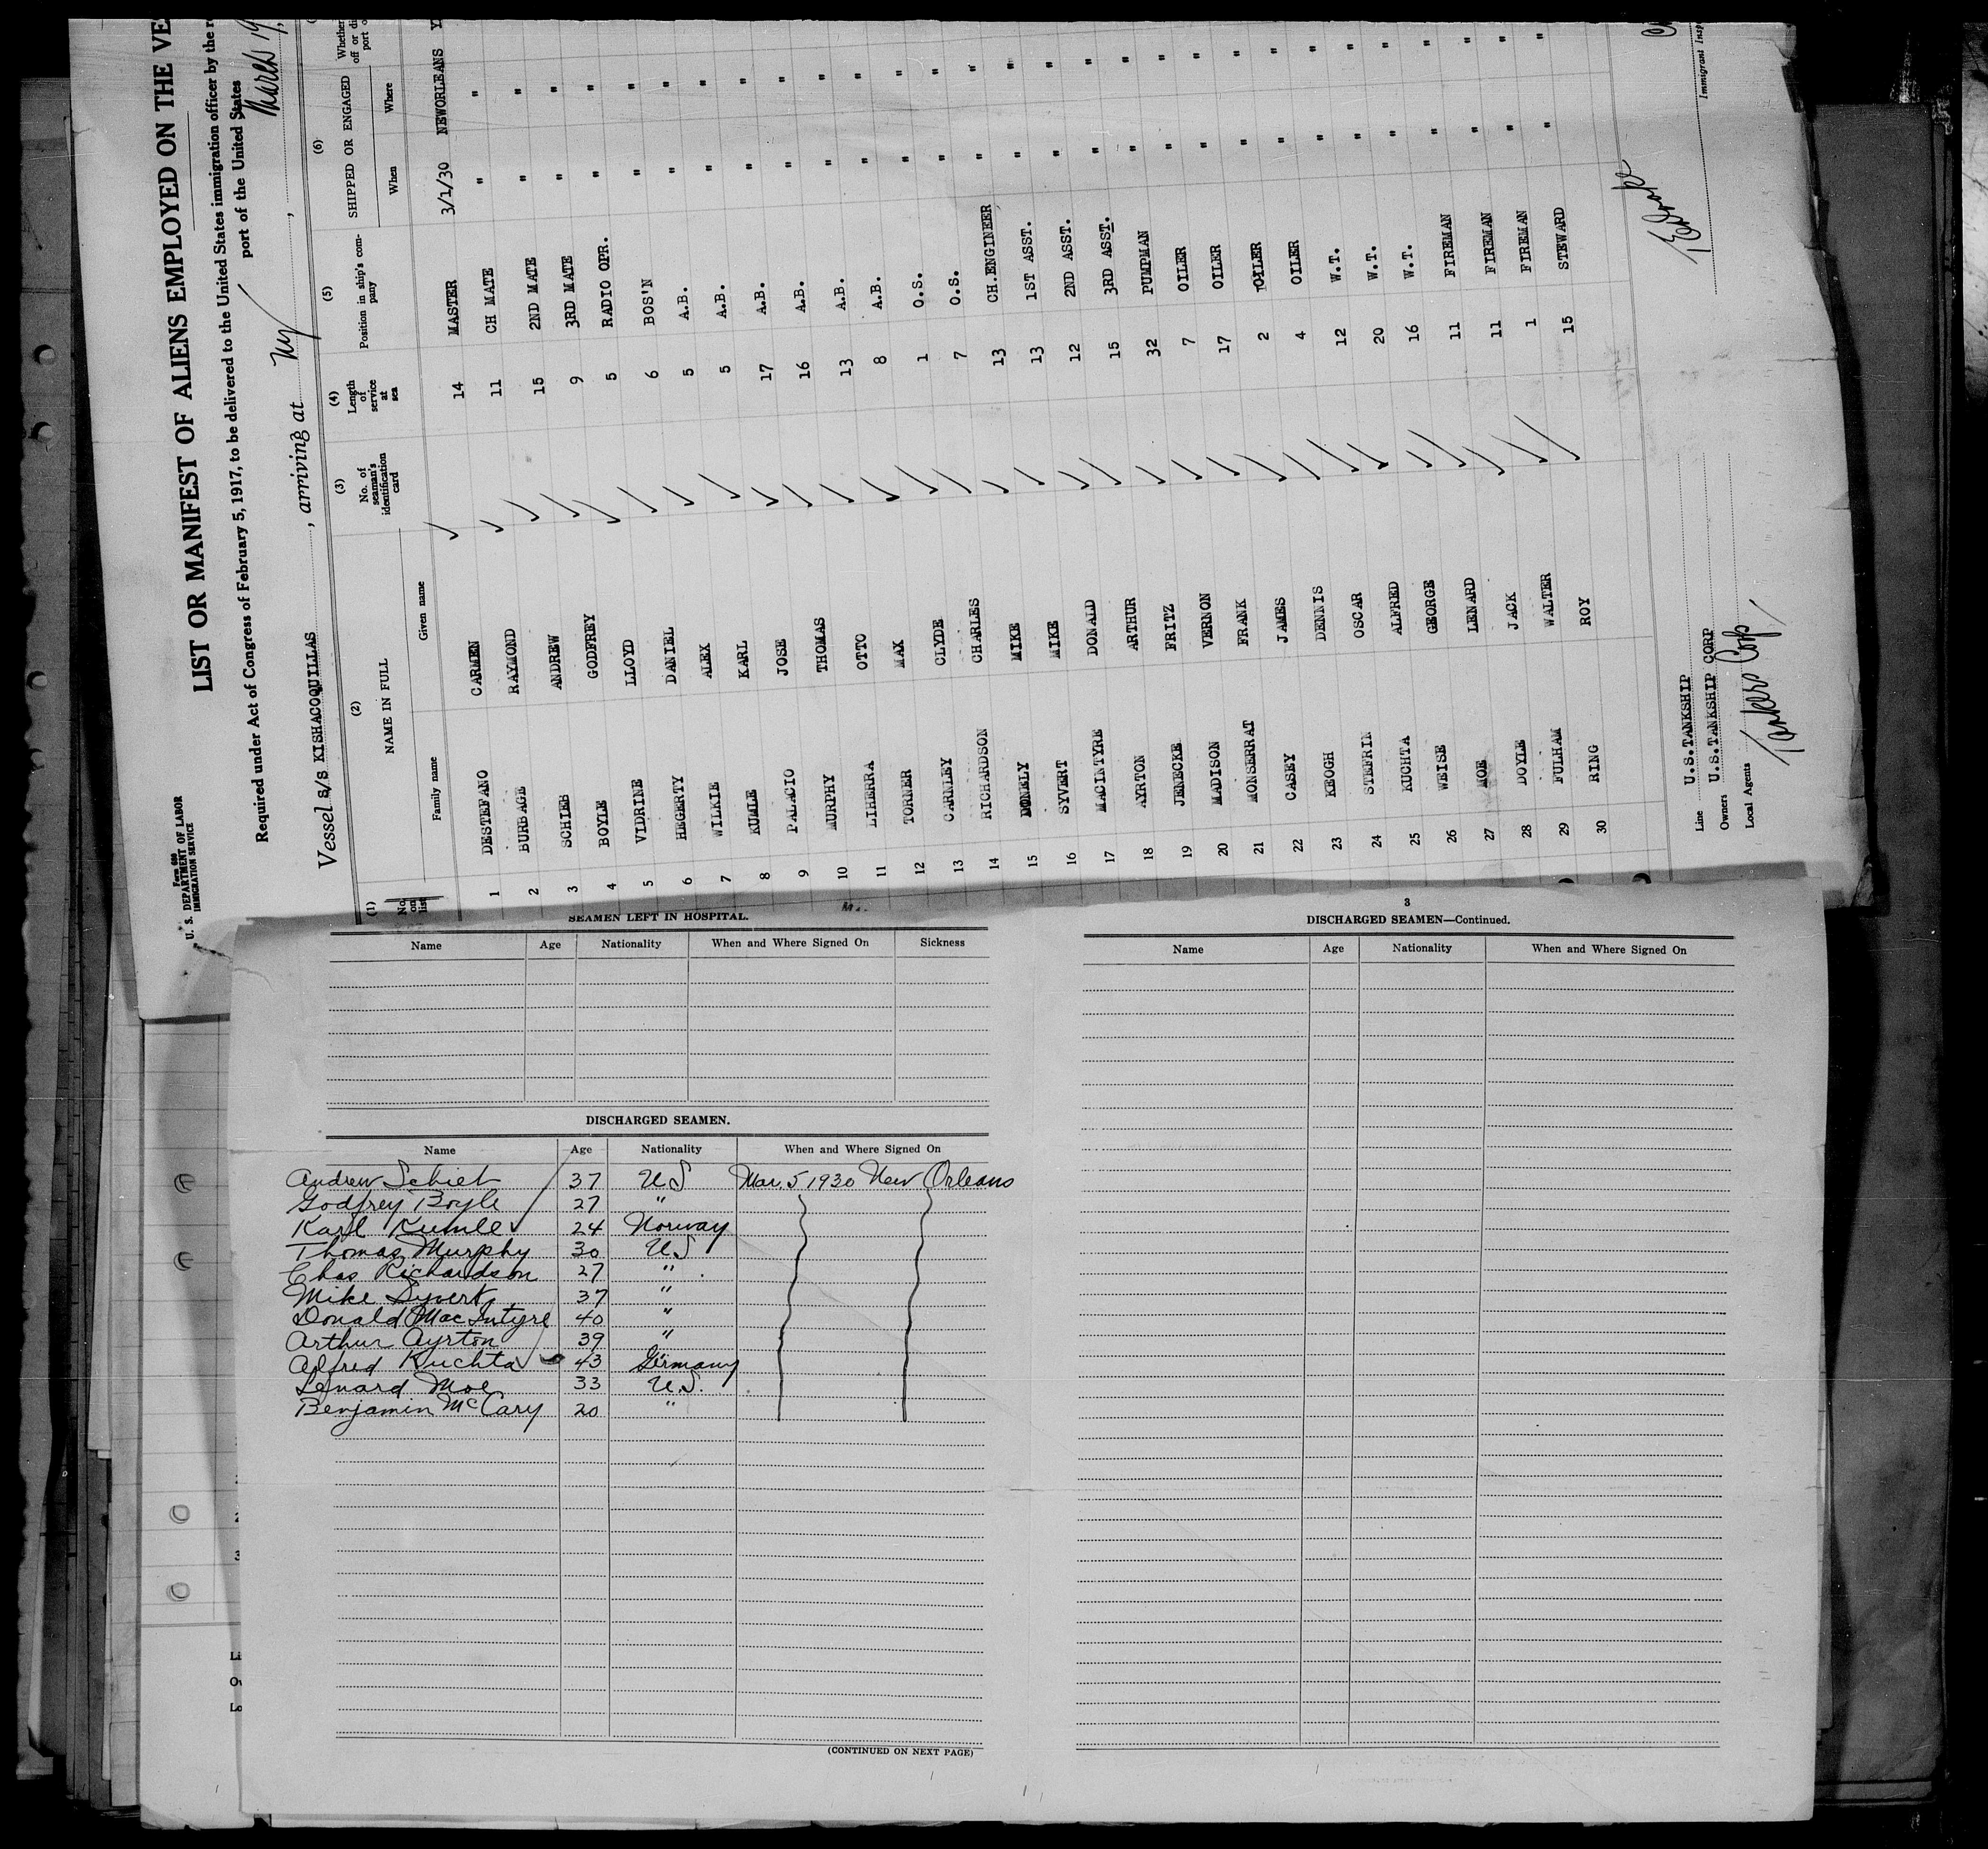 Form 680
U. S. DEPARTMENT OF LABOR
IMMIGRATION SERVICE
LIST OR MANIFEST OF ALIENS EMPLOYED ON THE VE
Required under Act of Congress of February 5, 1917, to be delivered to the United States immigration officer by the
port of the United States
Vessel S/S KISHACOQUILLAS, arriving at NY, March 19,
(1) No. on list (2) NAME IN FULL (3) No. of seaman's identification card (4) Length of service at sea (5) Position in ship's company (6) SHIPPED OR ENGAGED
Family name Given name When Where
1 DESTEFANO CARMEN 14 MASTER 3/1/30 NEWORLEANS
2 BURBAGE RAYMOND 11 CH MATE " " "
3 SCHIEB ANDREW 15 2ND MATE " " "
4 BOYLE GODFREY 9 3RD MATE " " "
5 VIDRINE LLOYD 5 RADIO OPR. " " "
6 HEGERTY DANIEL 6 BOS'N " " "
7 WILKIE ALEX 5 A.B. " " "
8 KUMLE KARL 5 A.B. " " "
9 PALACIO JOSE 17 A.B. " " "
10 MURPHY THOMAS 16 A.B. " " "
11 LIHERRA OTTO 13 A.B. " " "
12 TORNER MAX 8 A.B. " " "
13 CARNLEY CLYDE 1 O.S. " " "
14 RICHARDSON CHARLES 7 O.S. " " "
15 DONELY MIKE 13 CH.ENGINEER " " "
16 SYVERT MIKE 13 1ST ASST. " " "
17 MACINTYRE DONALD 12 2ND ASST. " " "
18 AYRTON ARTHUR 15 3RD ASST. " " "
19 JENECKE FRITZ 32 PUMPMAN " " "
20 MADISON VERNON 7 OILER " " "
21 MONSERRAT FRANK 17 OILER " " "
22 CASEY JAMES 2 OILER " " "
23 KEOGH DENNIS 4 OILER " " "
24 STEFRIN OSCAR 12 W.T. " " "
25 KUCHTA ALFRED 20 W.T. " " "
26 WEISE GEORGE 16 W.T. " " "
27 MOE LENARD 11 FIREMAN " " "
28 DOYLE JACK 11 FIREMAN " " "
29 FULHAM WALTER 1 FIREMAN " " "
30 RING ROY 15 STEWARD " " "
Line U.S.TANKSHIP
Owners U.S.TANKSHIP CORP
Local Agents Tankers Corp
Immigrant Insp
SEAMEN LEFT IN HOSPITAL.
Name Age Nationality When and Where Signed On Sickness
DISCHARGED SEAMEN.
Name Age Nationality When and Where Signed On
Andrew Schieb 37 US Mar. 5 1930 New Orleans
Godfrey Boyle 27 "
Karl Kumle 24 Norway
Thomas Murphy 30 US
Chas Richardson 27 "
Mike Syvert 37 "
Donald MacIntyre 40 "
Arthur Ayrton 39 "
Alfred Kuchta 43 Germany
Lenard Moe 33 U.S.
Benjamin McCary 20 "
(CONTINUED ON NEXT PAGE)
3
DISCHARGED SEAMEN—Continued.
Name Age Nationality When and Where Signed On